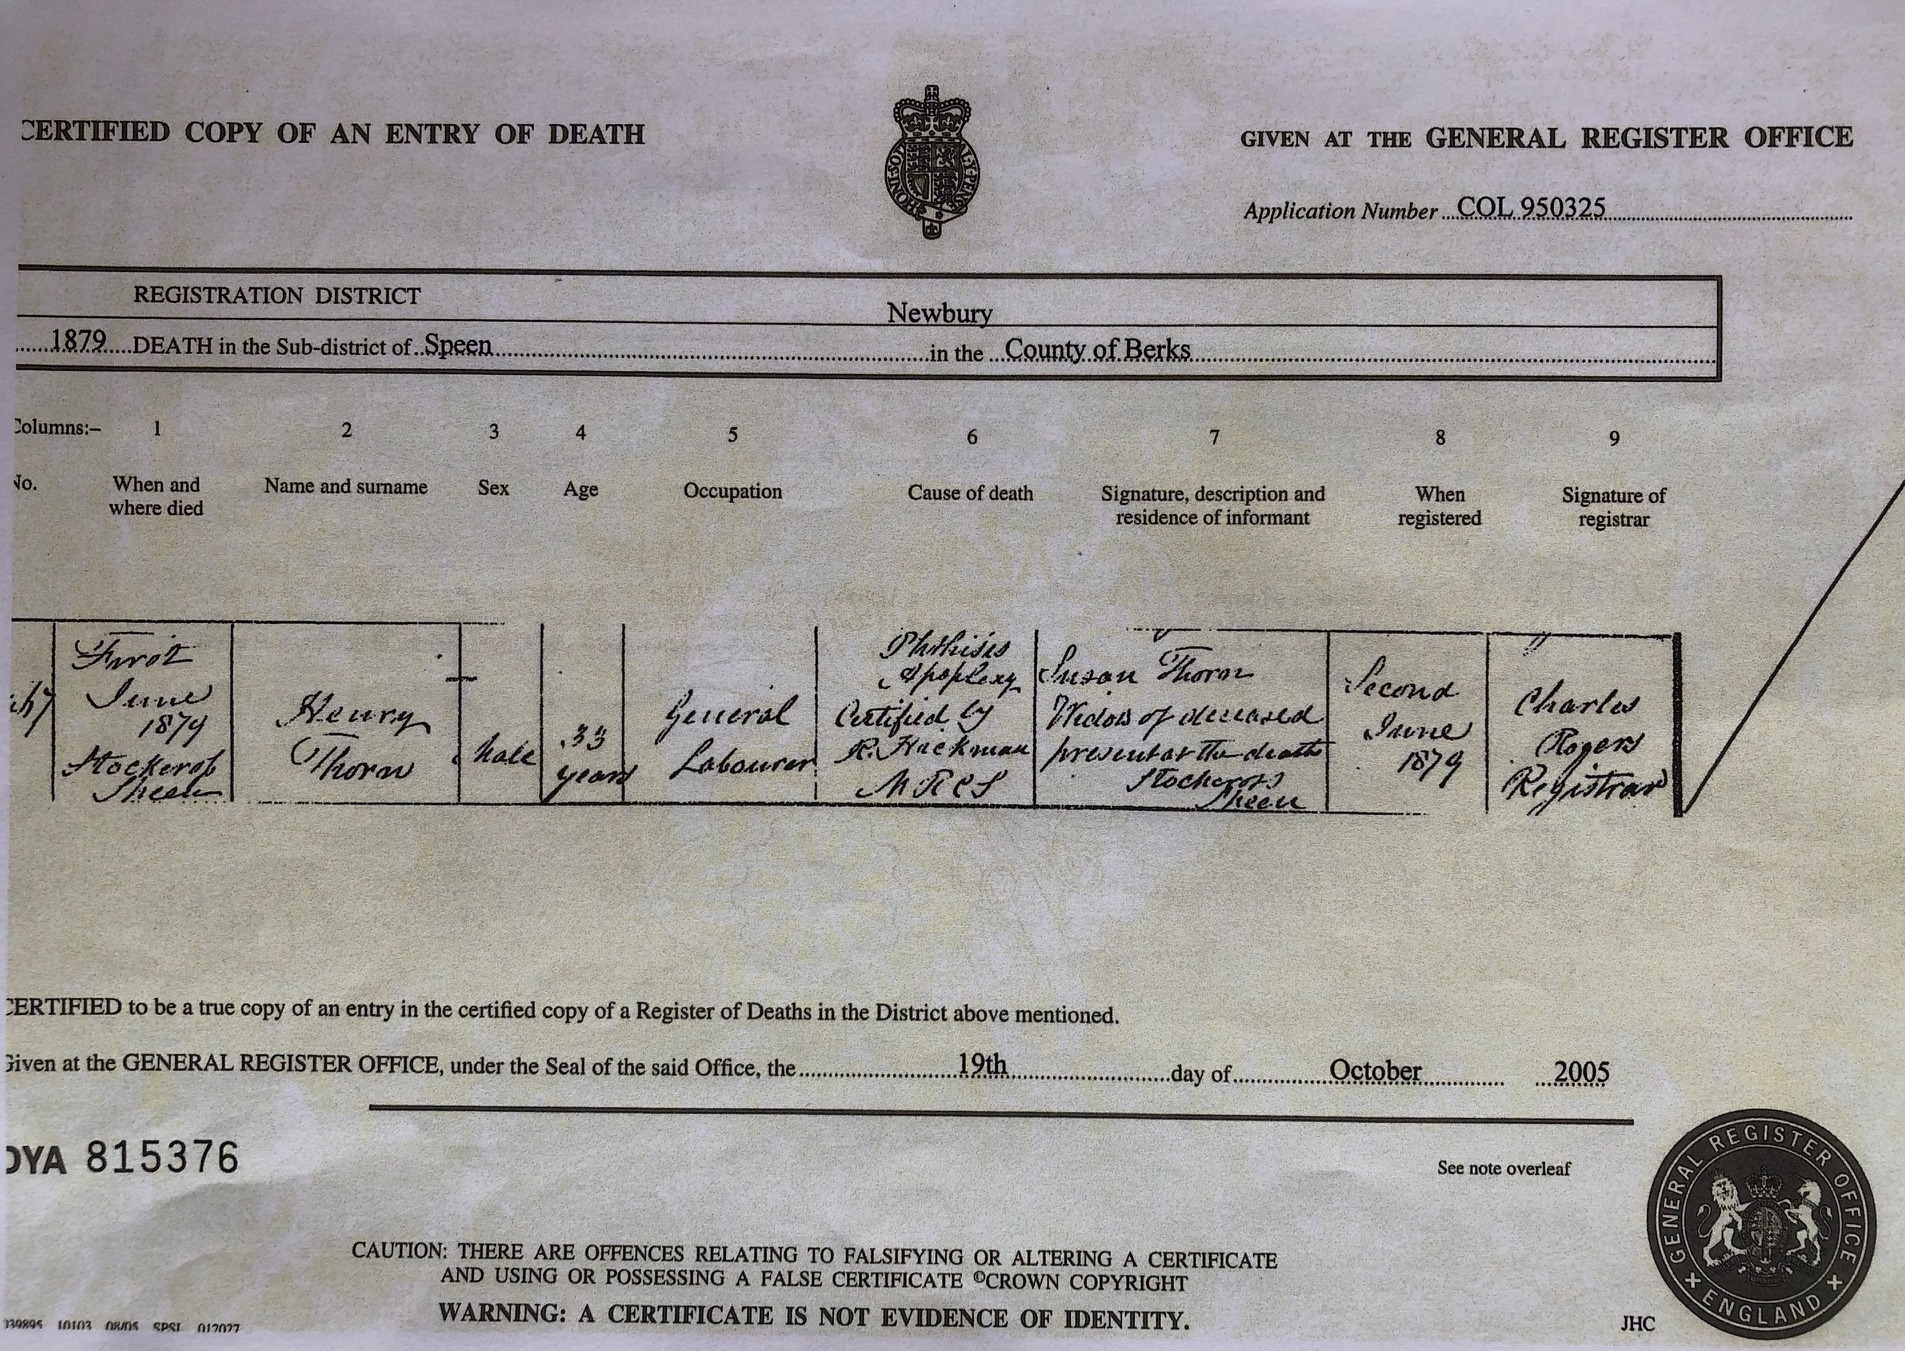 CERTIFIED COPY OF AN ENTRY OF DEATH
GIVEN AT THE GENERAL REGISTER OFFICE
Application Number COL 950325
REGISTRATION DISTRICT Newbury
1879 DEATH in the Sub-district of Speen in the County of Berks
Columns:– 1 2 3 4 5 6 7 8 9
No. When and where died Name and surname Sex Age Occupation Cause of death Signature, description and residence of informant When registered Signature of registrar
First
June
1879
Stockcross
Speen
Henry
Thorn
Male
33
years
General
Labourer
Phthisis
Apoplexy
Certified by
R. Hickman
MRCS
Susan Thorn
Widow of deceased
present at the death
Stockcross
Speen
Second
June
1879
Charles
Rogers
Registrar
CERTIFIED to be a true copy of an entry in the certified copy of a Register of Deaths in the District above mentioned.
Given at the GENERAL REGISTER OFFICE, under the Seal of the said Office, the 19th day of October 2005
DYA 815376
See note overleaf
CAUTION: THERE ARE OFFENCES RELATING TO FALSIFYING OR ALTERING A CERTIFICATE
AND USING OR POSSESSING A FALSE CERTIFICATE ©CROWN COPYRIGHT
WARNING: A CERTIFICATE IS NOT EVIDENCE OF IDENTITY.
GENERAL REGISTER OFFICE
ENGLAND
JHC